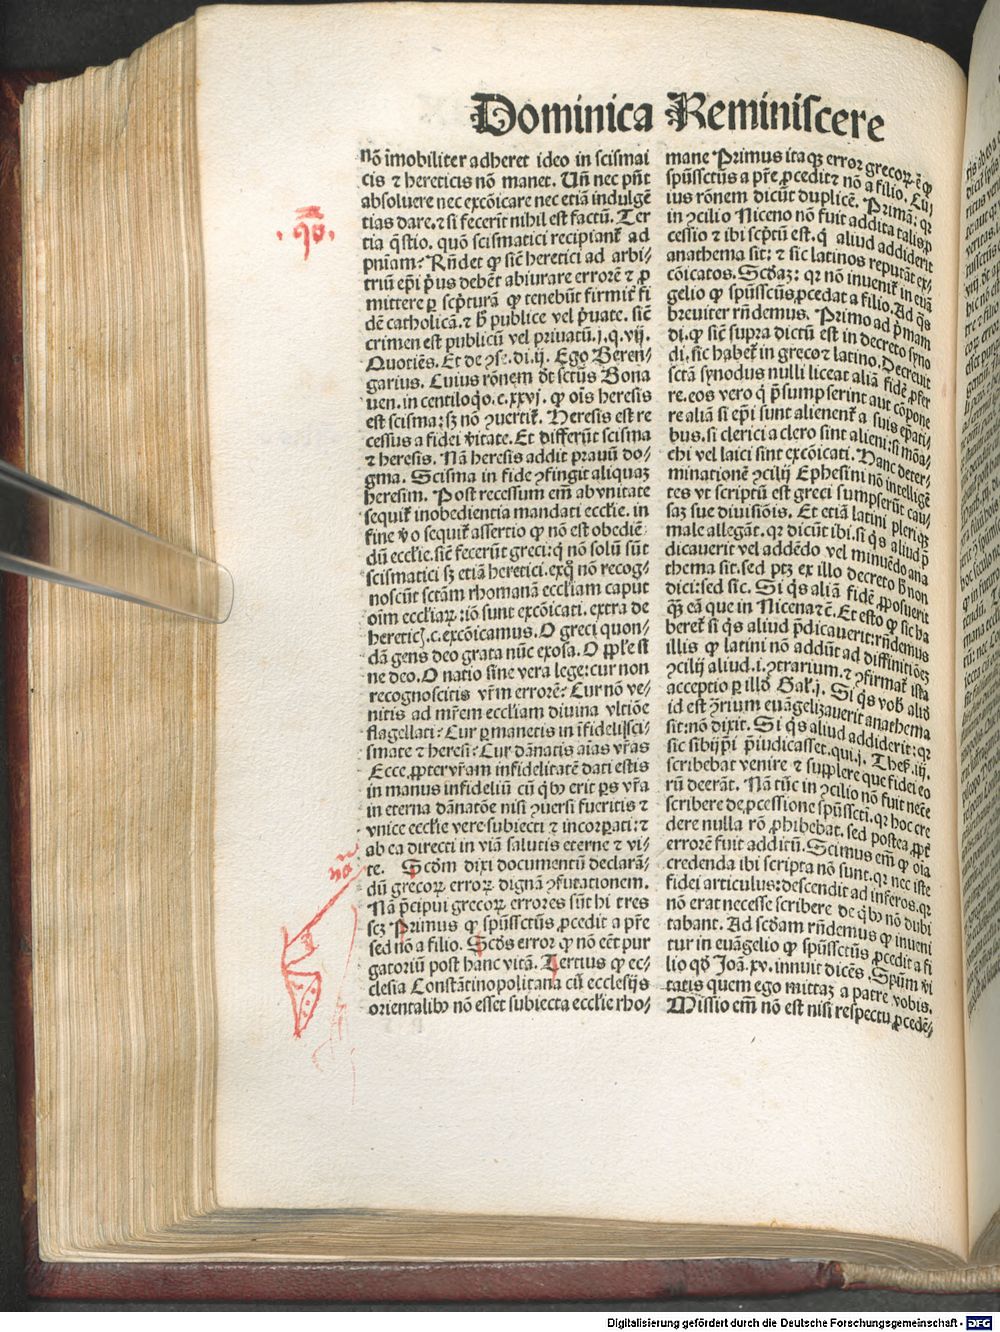 Dominica Reminiscere
nō imobiliter adheret ideo in scismai
cis ⁊ hereticis nō manet. Uñ nec pñt
absoluere nec excōicare nec etiā indulgē
tias dare.⁊ si fecerīt nihil est factū. Ter
tia q̄stio. quō scismatici recipianť ad
pniam? Rñdet ꝙ sič heretici ad arbi⸗
triū epi p̄us debēt abiurare errorē ⁊ ꝓ
mittere ꝑ scp̄turā ꝙ tenebūt firmiť fi
dē catholicā.⁊ ꝺ publice vel p̄uate. sič
crimen est publicū vel priuatū.j.q.vij.
Quotiēs. Et de ꝯse.di.ij. Ego Beren⸗
garius. Cuius rōnem ꝺt sctūs Bona
uen. in centiloq̊o.c.xxvj. ꝙ oīs heresis
est scisma: sꝫ nō ꝯuertiť. Heresis est re
cessus a fidei v̄itate. Et differūt scisma
⁊ heresis. Nā heresis addit prauū do⸗
gma. Scisma in fide ꝯfingit aliquaꝫ
heresim. Post recessum em̄ ab vnitate
sequiť inobedientia mandati eccłie. in
fine v̊o sequiť assertio ꝙ nō est obediē
dū eccłie. sič fecerūt greci: q̄ nō solū sūt
scismatici sꝫ etiā heretici. ex q̊ nō recog⸗
noscūt sctām rhomanā eccłiam caput
oīm eccłiaꝝ: iō sunt excōicati. extra de
heretic̄.c.excōicamus. O greci quon⸗
dā gens deo grata nūc exosa. O pp̄le si
ne deo. O natio sine vera lege: cur non
recognoscitis vr̄m errorē? Cur nō ve⸗
nitis ad mr̄em eccłiam diuina vltiōe
flagellati? Cur ꝑmanetis in īfideli sci⸗
smate ⁊ heresi? Cur dānatis aīas vr̄as
Ecce ꝓpter vr̄am infidelitatē dati estis
in manus infideliū cū qb̊ erit ꝑs vr̄a
in eterna dānatōe nisi ꝯuersi fueritis ⁊
vnice eccłie vere subiecti ⁊ incorꝑati: ⁊
ab ea directi in viā salutis eterne ⁊ vi⸗
te. Scdm dixi documentū declarā⸗
dū grecoꝝ erroꝝ dignā ꝯfutationem.
Nā p̄cipui grecoꝝ errores sūt hi tres
scꝫ Primus ꝙ spūssctūs ꝓcedit a pr̄e
sed nō a filio. Scdus error ꝙ nō eēt pur
gatoriū post hanc vitā. Tertius ꝙ ec⸗
clesia Constātinopolitana cū ecclesijs
orientalib̊ nō esset subiecta eccłie rho⸗
mane Primus itaqꝫ error grecoꝝ ē ꝙ
spūssctūs a pr̄e ꝓcedit ⁊ nō a filio. Cui
ius rōnem dicūt duplicē. Prima: qꝛ
in ꝯcilio Niceno nō fuit addita talis ꝓ
cessio ⁊ ibi scp̄tū est. q̄ aliud addiderit
anathema sit: ⁊ sic latinos reputāt ex⸗
cōicatos. Scd̄aꝫ: qꝛ nō inueniť in euā
gelio ꝙ spūssctūs ꝓcedat a filio. Ad q̄s
breuiter rñdemus. Primo ad p̄mam
di. ꝙ sič supra dictū est in decreto syno
di. sic habeť in greco ⁊ latino. Decreuit
sctā synodus nulli liceat aliā fidē ꝓfer
re. eos vero q̄ p̄sumpserint aut cōpone
re aliā si epi sunt alienenť a suis epati⸗
bus. si clerici a clero sint alieni: si mōa⸗
chi vel laici sint excōicati. Hanc deter⸗
minationē ꝯcilij Ephesini nō intelligē
tes vt scriptū est greci sumpserūt cau⸗
saꝫ sue diuisiōis. Et etiā latini pleriqꝫ
male allegāt. qꝛ dicūt ibi. si q̄s aliud p̄
dicauerit vel addēdo vel minuēdo ana
thema sit. sed ptꝫ ex illo decreto ꝺ non
dici: sed sic. Si q̄s aliā fidē ꝓposuerit
q̄ꝫ eā que in Nicena ē ⁊c. Et esto ꝙ sic ha
bereť si q̄s aliud p̄dicauerit: rñdemus
illis ꝙ latini nō addūt ad diffinitiōeꝫ
ꝯcilij aliud.i. ꝯtrarium. ⁊ ꝯfirmať ista
acceptio ꝑ illd̄ Gał.j. Si q̄s vob̊ aliđ
id est ꝯrium euāgelizauerit anathema
sit: nō dixit. Si q̄s aliud addiderit: qꝛ
sic sibijp̄i p̄iudicasset. qui .j. Thes̄. iij.
scribebat venire ⁊ supplere que fidei eo
rū deerāt. Nā tūc in ꝯcilio nō fuit necē
scribere de ꝓcessione spūsscti. qꝛ hoc cre
dere nulla rō ꝓhibebat. sed postea ꝓpt̄
errorē fuit additū. Scimus em̄ ꝙ oīa
credenda ibi scripta nō sunt. qꝛ nec iste
fidei articulus: descendit ad inferos. qꝛ
nō erat necesse scribere de qb̊ nō dubi
tabant. Ad scdam rñdemus ꝙ inueni
tur in euāgelio ꝙ spūssctūs ꝓcedit a fi
lio qđ Joā.xv. innuit dicēs. Spūm v̄i
tatis quem ego mittaꝫ a patre vobis.
Missio em̄ nō est nisi respectu ꝓcedē⸗
Digitalisierung gefördert durch die Deutsche Forschungsgemeinschaft - DFG